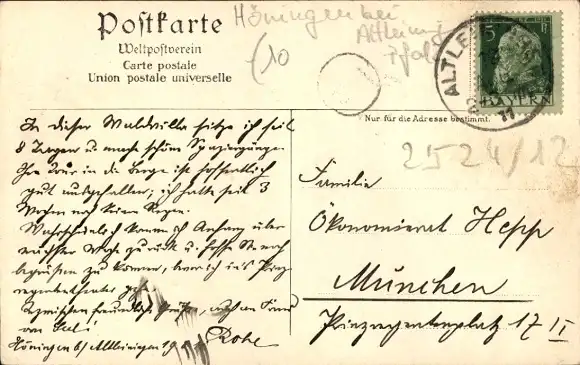 Postkarte
Weltpostverein
Carte postale
Union postale universelle
Höningen bei
Altleining
Pfalz
(10
ALTLE
5
BAYERN
11
Nur für die Adresse bestimmt.
2524/12
In dieser Waldvilla sitze ich seit
8 Tagen u. mache schöne Spaziergänge.
Ihre Tour in die Berge ist hoffentlich
gut ausgefallen; ich hatte seit 3
Wochen noch keinen Regen.
Wahrscheinlich komme ich Anfang über
nächster Woche zurück u. hoffe Sie noch
begrüßen zu können, bevor ich ins Prinz
regententheater gehe.
Inzwischen freundliche Grüße, auch an Frau
von
Höningen b/ Altleiningen 19
Familie
Ökonomierat Hepp
München
Prinzregentenplatz 17 II